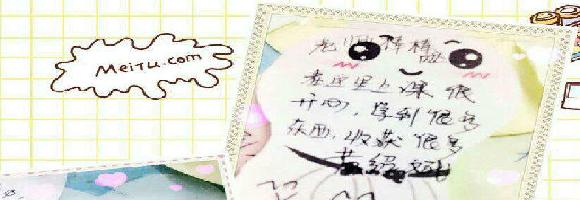 MeiTu.com
老师棒棒哒
在这里上课很
开心,学到很多
东西,收获很多